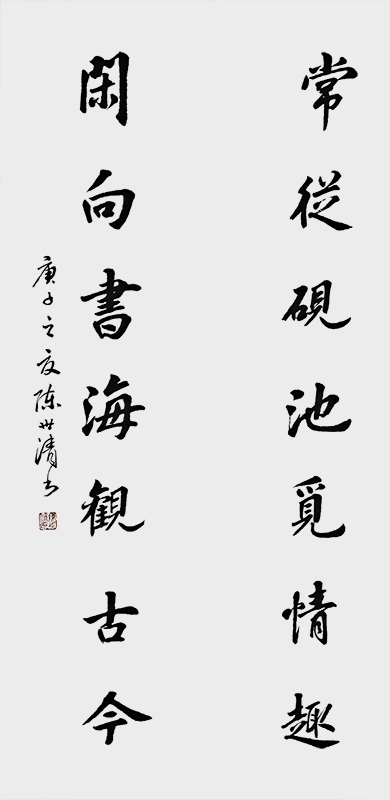 常從硯池覓情趣
閑向書海觀古今
庚子之夏陈世清书